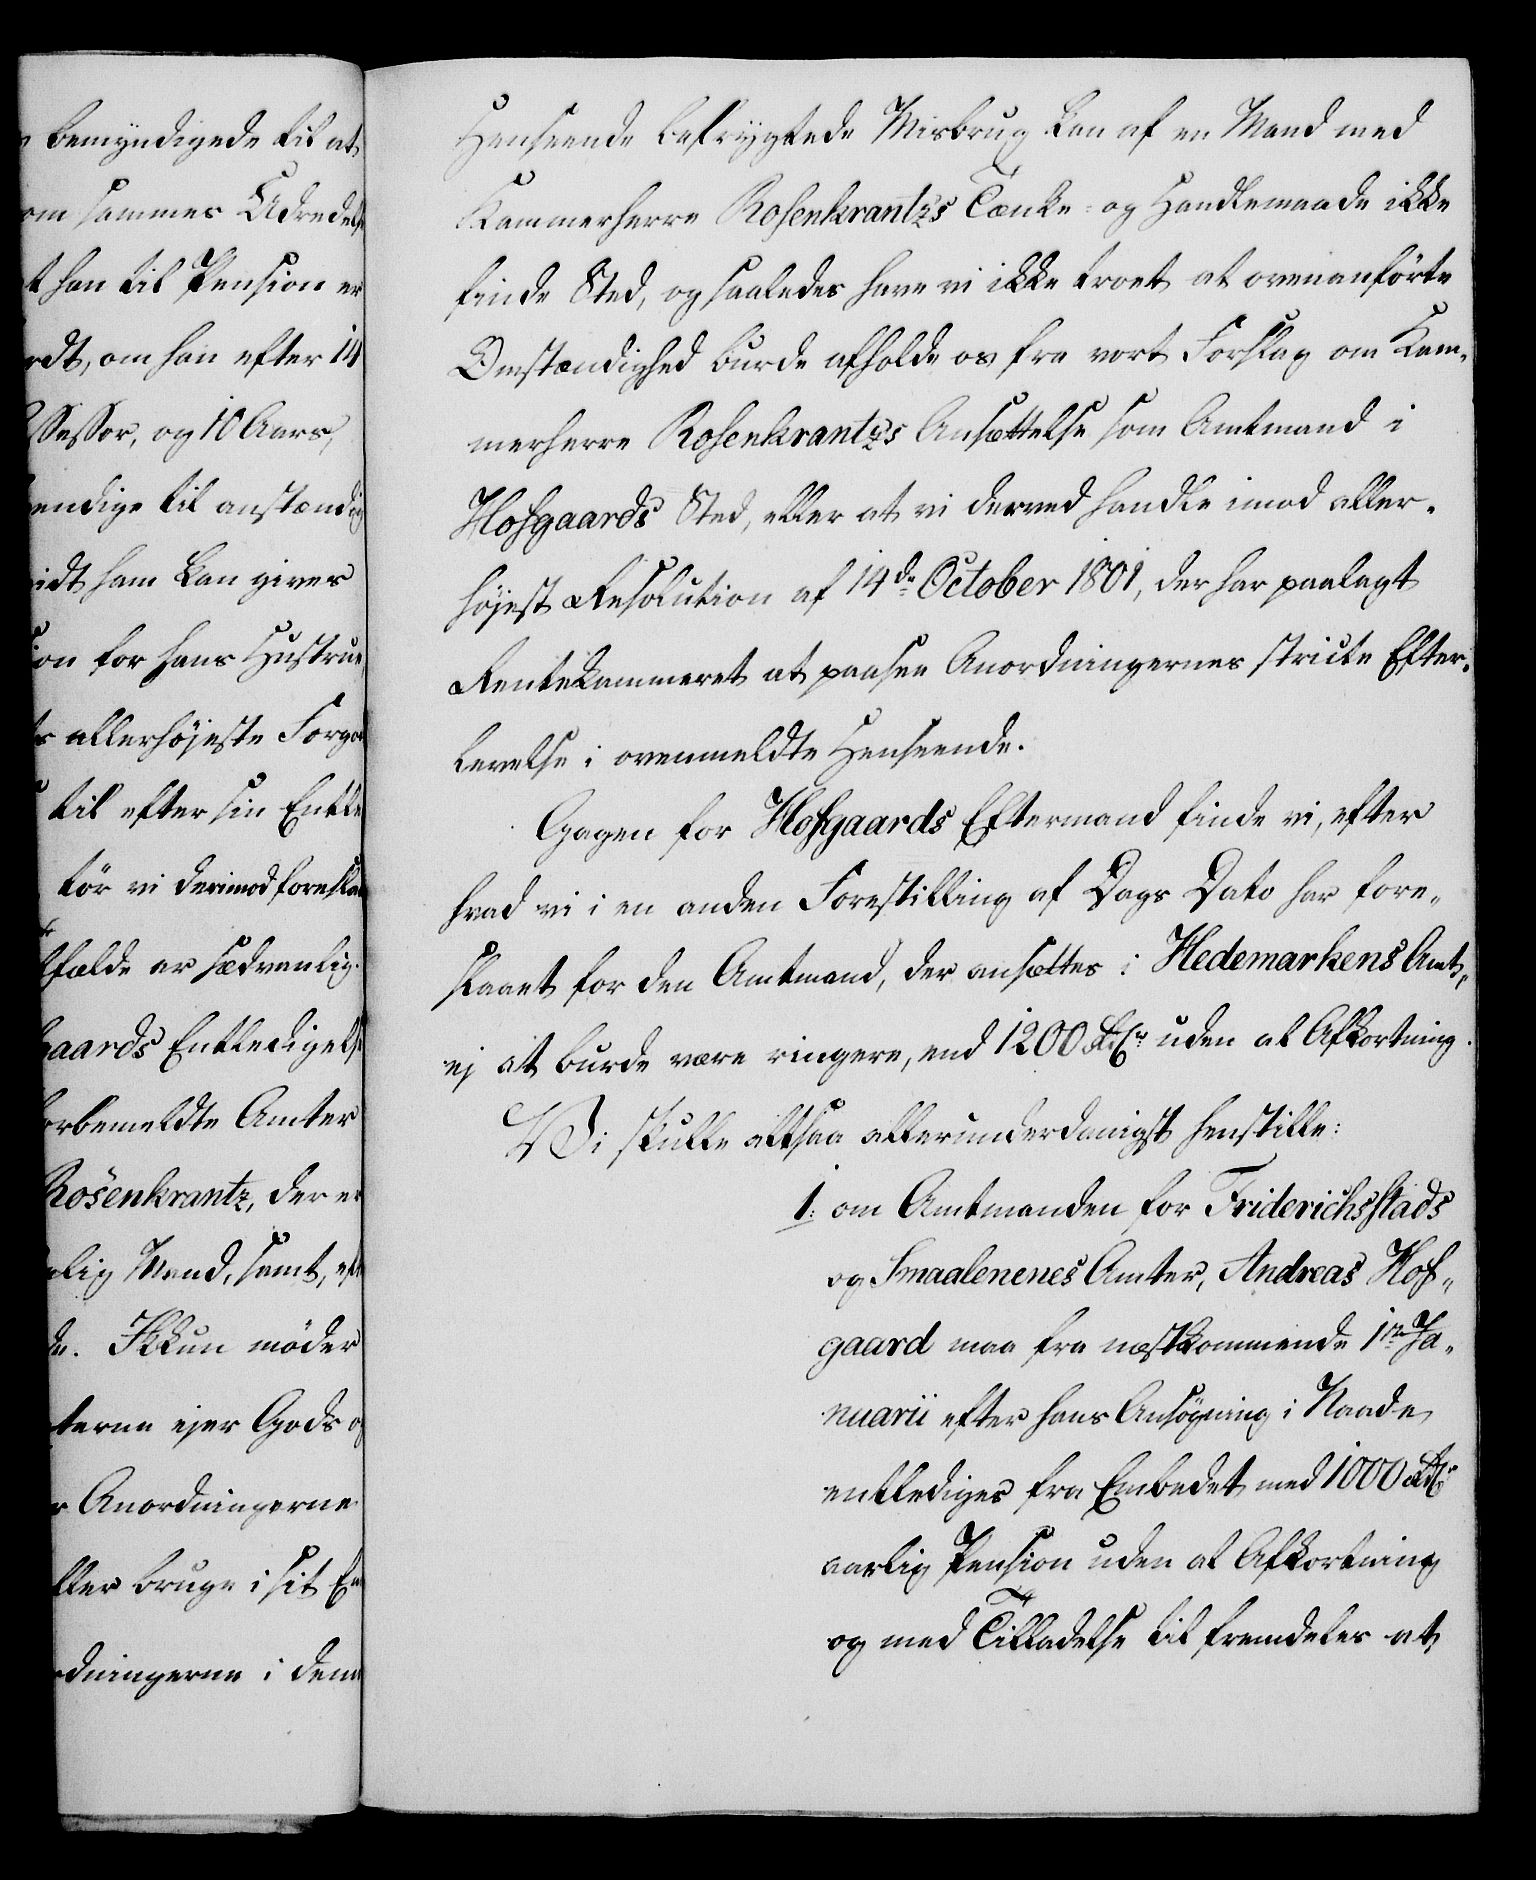 bemyndigede til at
om sammes Udredelse
t han til Pension er
rdt, om han efter 14
ssessor, og 10 Aars,
endige til anstændig
idt ham kan gives
ion for hans Hustrue,
allerhöjeste Forgod
til efter sin Entle
tör vi derimod foreslaae
lfælde er sædvanlig.
gaards Entledigelse
orbemeldte Amter
Rosenkrantz, der er
lig Mand, samt, eft
de. Ikkun möder
terne ejer Gods og
r Anordningerne
ller bruge i sit Em
dningerne i denne
Henseende befrygtede Misbrug kan af en Mand med
Kammerherre Rosenkrantz's Tænke- og Handlemaade ikke
finde Sted, og saaledes have vi ikke troet at ovenanförte
Omstændighed burde afholde os fra vort Forslag om Kam-
merherre Rosenkrantz's Ansættelse som Amtmand i
Hofgaards Sted, eller at vi derved handle imod aller-
höjest Resolution af 14de October 1801, der har paalagt
Rentekammeret at paasee Anordningernes stricte Efter-
levelse i ovenmeldte Henseende.
Gagen for Hofgaards Eftermand finde vi, efter
hvad vi i en anden Forestilling af Dags Dato har fore-
slaaet for den Amtmand, der ansættes i Hedemarkens Amt,
ej at burde være ringere, end 1200 Rdr uden al Afkortning.
Vi skulle altsaa allerunderdanigst henstille:
1: om Amtmanden for Friderichsstads
og Smaalenenes Amter, Andreas Hof-
gaard maa fra næstkommende 1ste Ja-
nuarii efter hans Ansögning i Naade
entlediges fra Embedet med 1000 Rdr
aarlig Pension uden al Afkortning
og med Tilladelse til fremdeles at